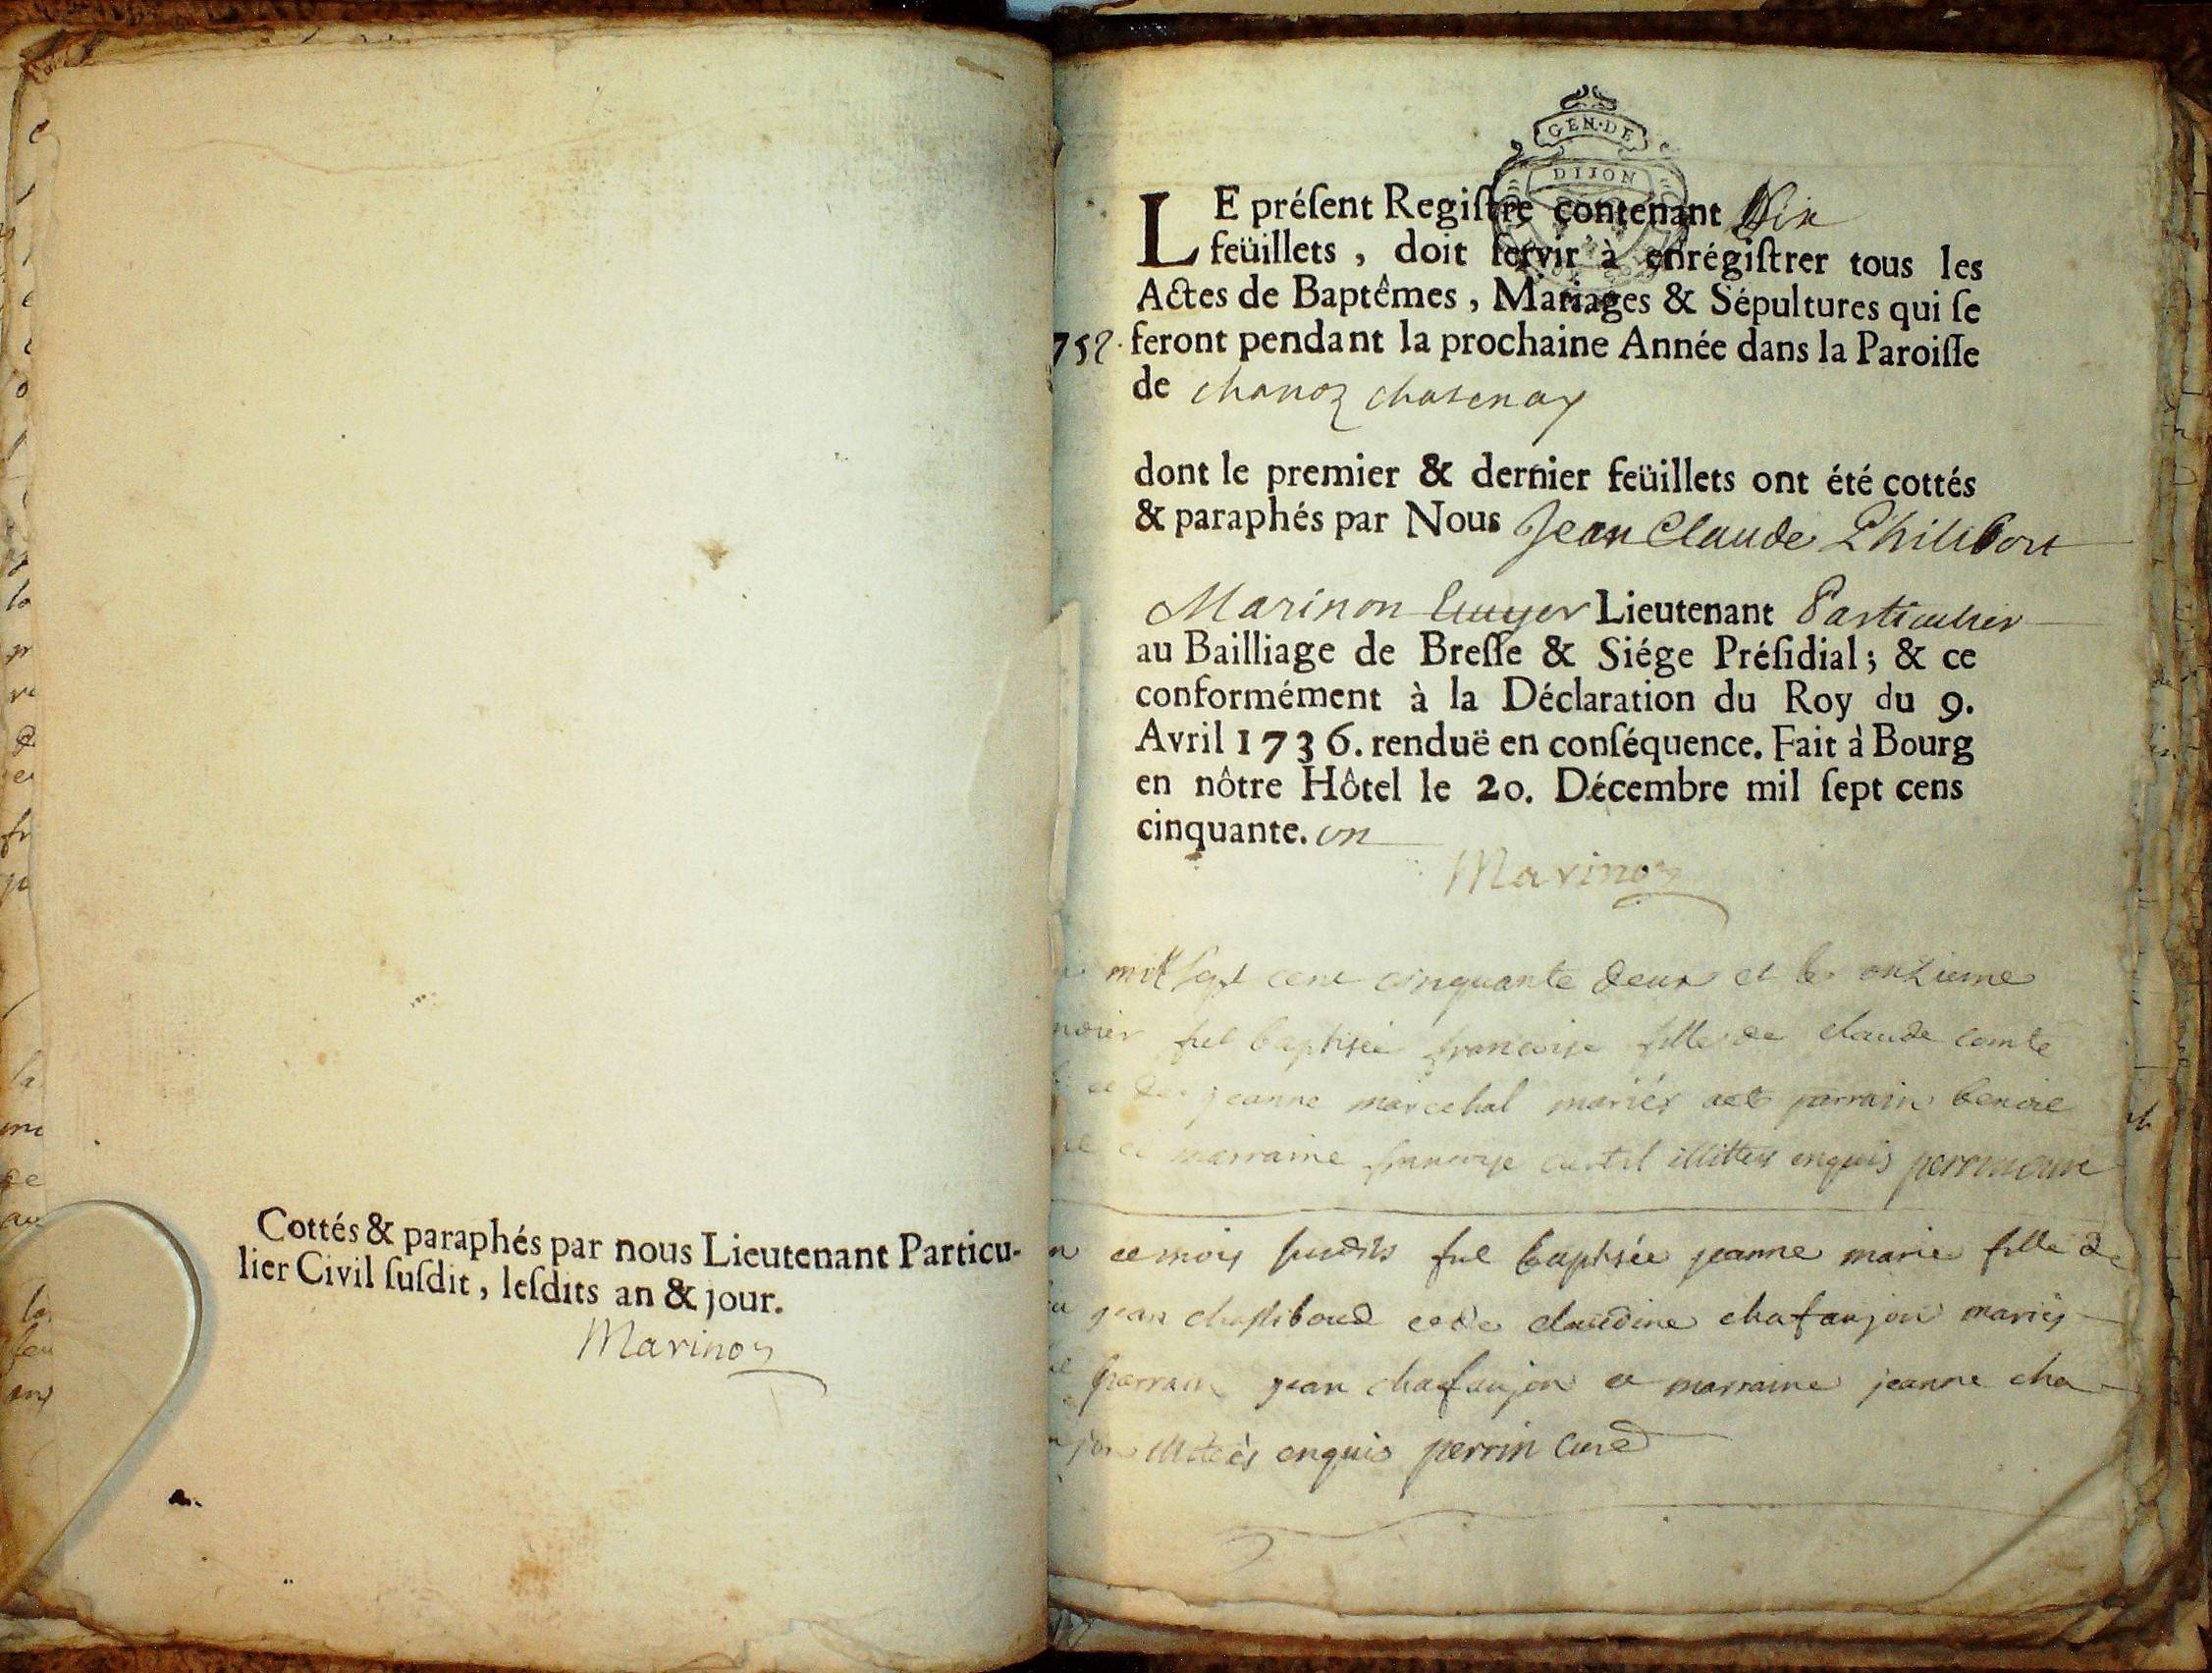 Cottés & paraphés par nous Lieutenant Particu-
lier Civil ſuſdit, leſdits an & jour.
Marinon
GEN·DE
DIJON
LE préſent Regiſtre contenant Dix
feüillets, doit ſervir à enrégiſtrer tous les
Actes de Baptêmes, Mariages & Sépultures qui ſe
752. feront pendant la prochaine Année dans la Paroiſſe
de chanoz chatenay
dont le premier & dernier feüillets ont été cottés
& paraphés par Nous Jean Claude Philibert
Marinon Lieutenant Particulier
au Bailliage de Breſſe & Siége Préſidial; & ce
conformément à la Déclaration du Roy du 9.
Avril 1736. renduë en conſéquence. Fait à Bourg
en nôtre Hôtel le 20. Décembre mil ſept cens
cinquante. un
Marinon
mil sept cent cinquante deux et le onzieme
nvier fut baptisée francoise fille de claude comte
et de jeanne marechal mariés parrain benoit
et marraine francoise illitteres enquis perrin curé
ce mois susdits fut baptisée jeanne marie fille de
jean et de claudine chafanjon mariés
parrain jean chafanjon et marraine jeanne cha-
jon enquis perrin curé